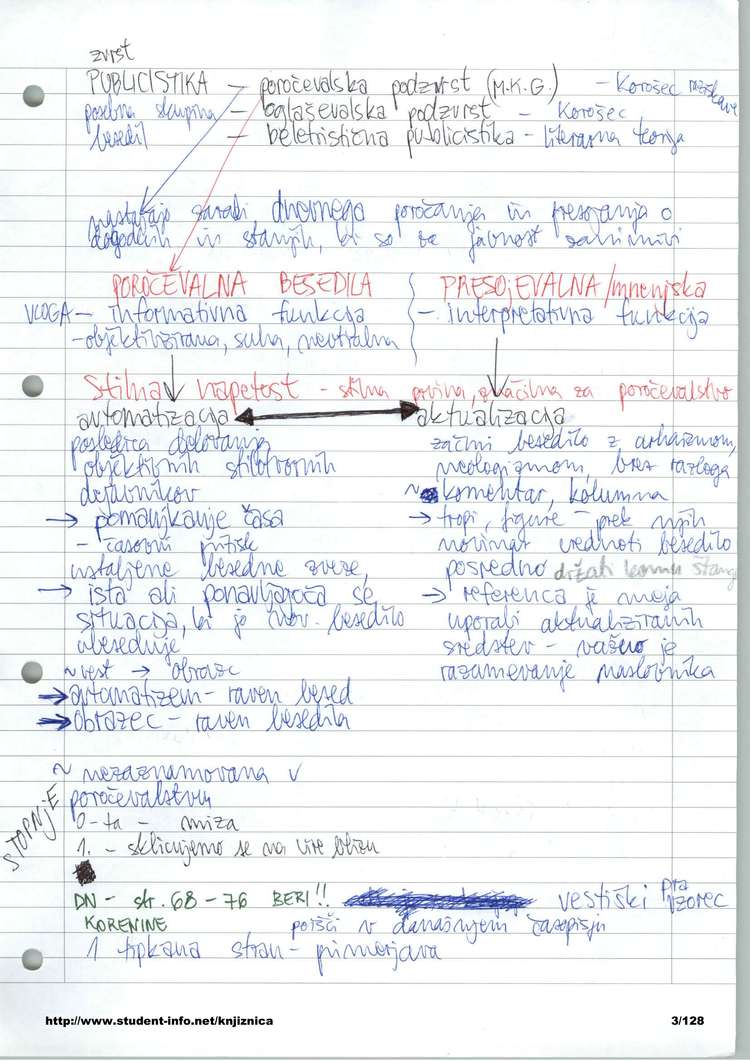 zvrst
PUBLICISTIKA – poročevalska podzvrst (M.K.G.) – Korošec raziskave
posebna skupina – oglaševalska podzvrst – Korošec
besedil – beletristična publicistika – literarna teorija
nastajajo zaradi dnevnega poročanja in presojanja o
dogodkih in stanjih, ki so za javnost zanimivi
POROČEVALNA BESEDILA
VLOGA – informativna funkcija
– objektivizirana, suha, nevtralna
PRESOJEVALNA/mnenjska
– interpretativna funkcija
Stilna napetost – stilna prvina, značilna za poročevalstvo
avtomatizacija
posledica delovanja
objektivnih stilotvornih
dejavnikov
→ pomanjkanje časa
– časovni pritisk
ustaljene besedne zveze,
→ ista ali ponavljajoča se
situacija, ki jo nov. besedilo
ubeseduje
~ vest → obrazec
→ avtomatizem – raven besed
→ obrazec – raven besedila
aktualizacija
začini besedilo z arhaizmom,
neologizmom, brez razloga
~ komentar, kolumna
→ tropi, figure – prek njih
novinar vrednoti besedilo
posredno držati komu štango
→ referenca je meja
uporabi aktualiziranih
sredstev – važno je
razumevanje naslovnika
~ nezaznamovana v
poročevalstvu
STOPNJE
0-ta – miza
1. – sklicujemo se na vire blizu
DN – str. 68 – 76 BERI!! vestiški pra vzorec
KORENINE poišči v današnjem časopisju
1 tipkana stran – primerjava
http://www.student-info.net/knjiznica
3/128